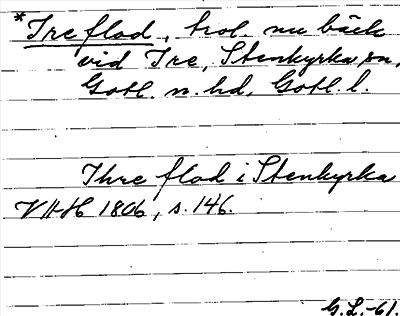 *Ire flod, trol. nu bäck
vid Ire, Stenkyrka sn,
Gotl. n. hd, Gotl. l.
Ihre flod i Stenkyrka
VHH 1806, s. 146.
G.L.-61.